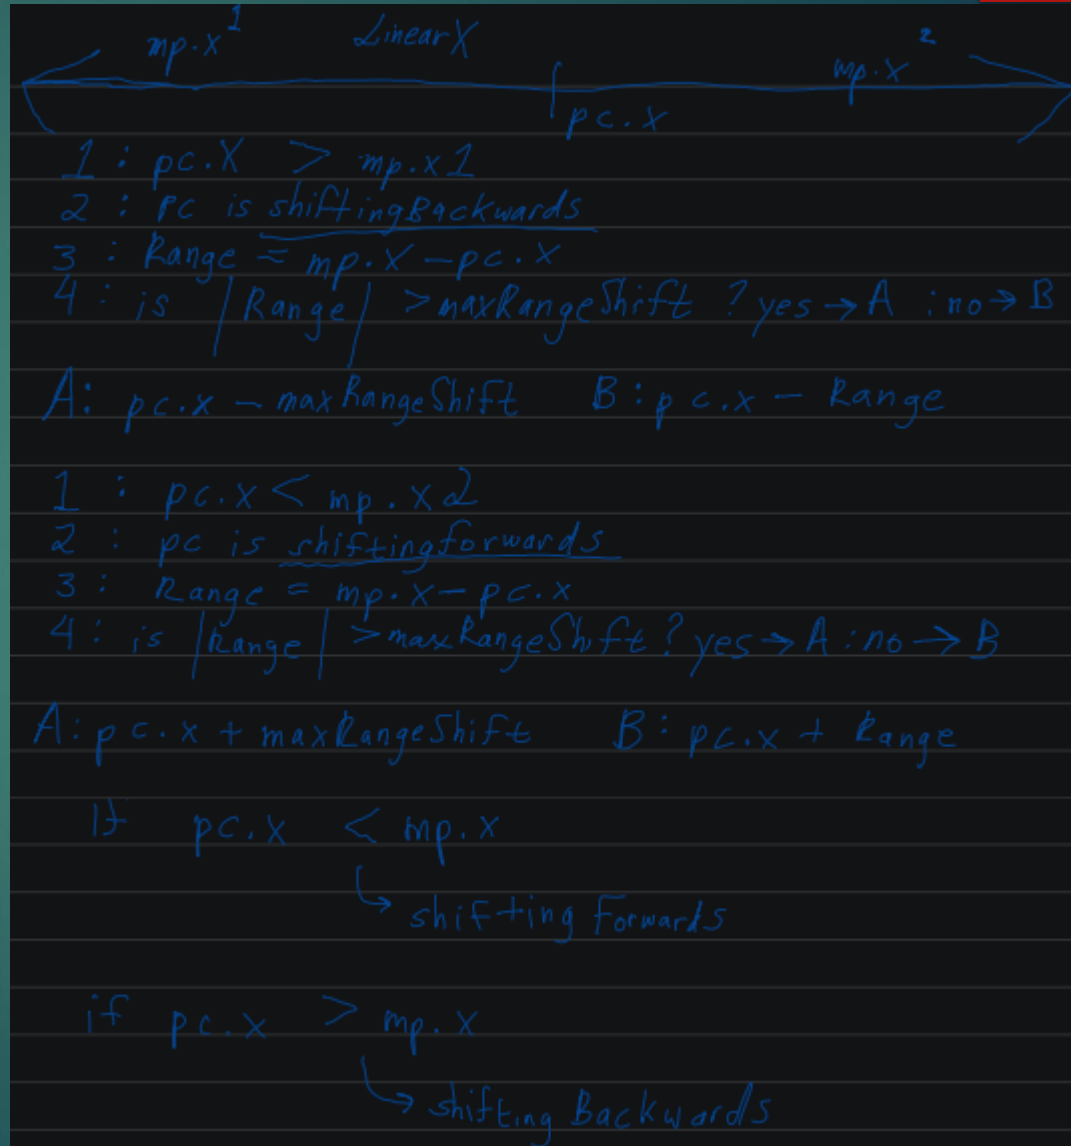 mp.x 1 LinearX mp.x 2
pc.x
1 : pc.X > mp.x1
2 : pc is shiftingBackwards
3 : Range = mp.x - pc.x
4 : is |Range| > maxRangeShift ? yes → A : no → B
A: pc.x - maxRangeShift B: pc.x - Range
1 : pc.x < mp.x2
2 : pc is shiftingforwards
3 : Range = mp.x - pc.x
4 : is |Range| > maxRangeShift ? yes → A : no → B
A: pc.x + maxRangeShift B: pc.x + Range
If pc.x < mp.x
↳ shifting Forwards
if pc.x > mp.x
↳ shifting Backwards